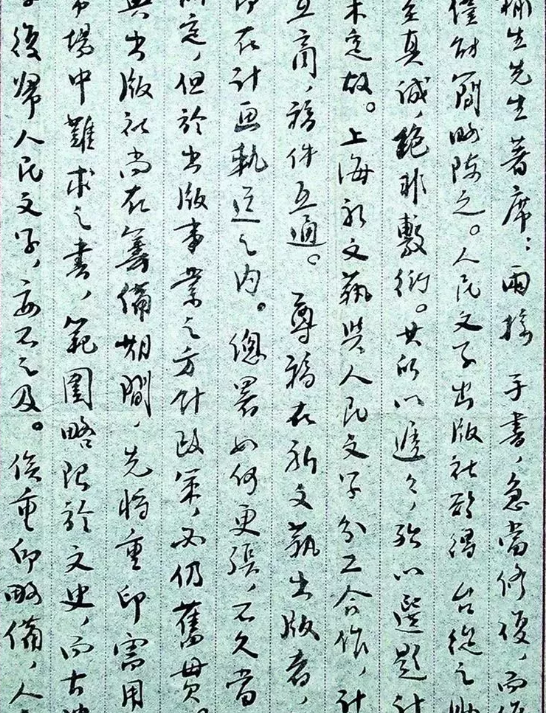 桐生先生著席：兩接 手書，急當修復，而
僅能簡略陳之。人民文學出版社能得 台從之
至真誠，絕非敷衍。其所以遲遲，殆以選題計
未定故。上海新文藝與人民文學分工合作，計
互商，稿件互通。 尊稿在新文藝出版者，
仍在計畫軌道之內。總署如何更張，不久當
決定，但於出版事業之方針政策，必仍舊貫。
與出版社尚在籌備期間，先將重印需用
市場中難求之書，範圍略限於文史，而古
復歸人民文學，亦不之及。俟重印略備，人